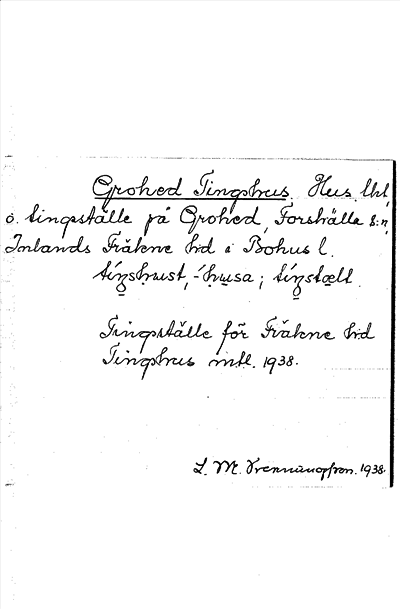 Grohed Tingshus. Hus
o. tingsställe på Grohed, Forshälla s:n,
Inlands Fräkne hd i Bohus l.
tíŋshust, -húsa; tíŋstælt.
Tingställe för Fräkne hd
Tingshus intl. 1938.
L. M. 1938